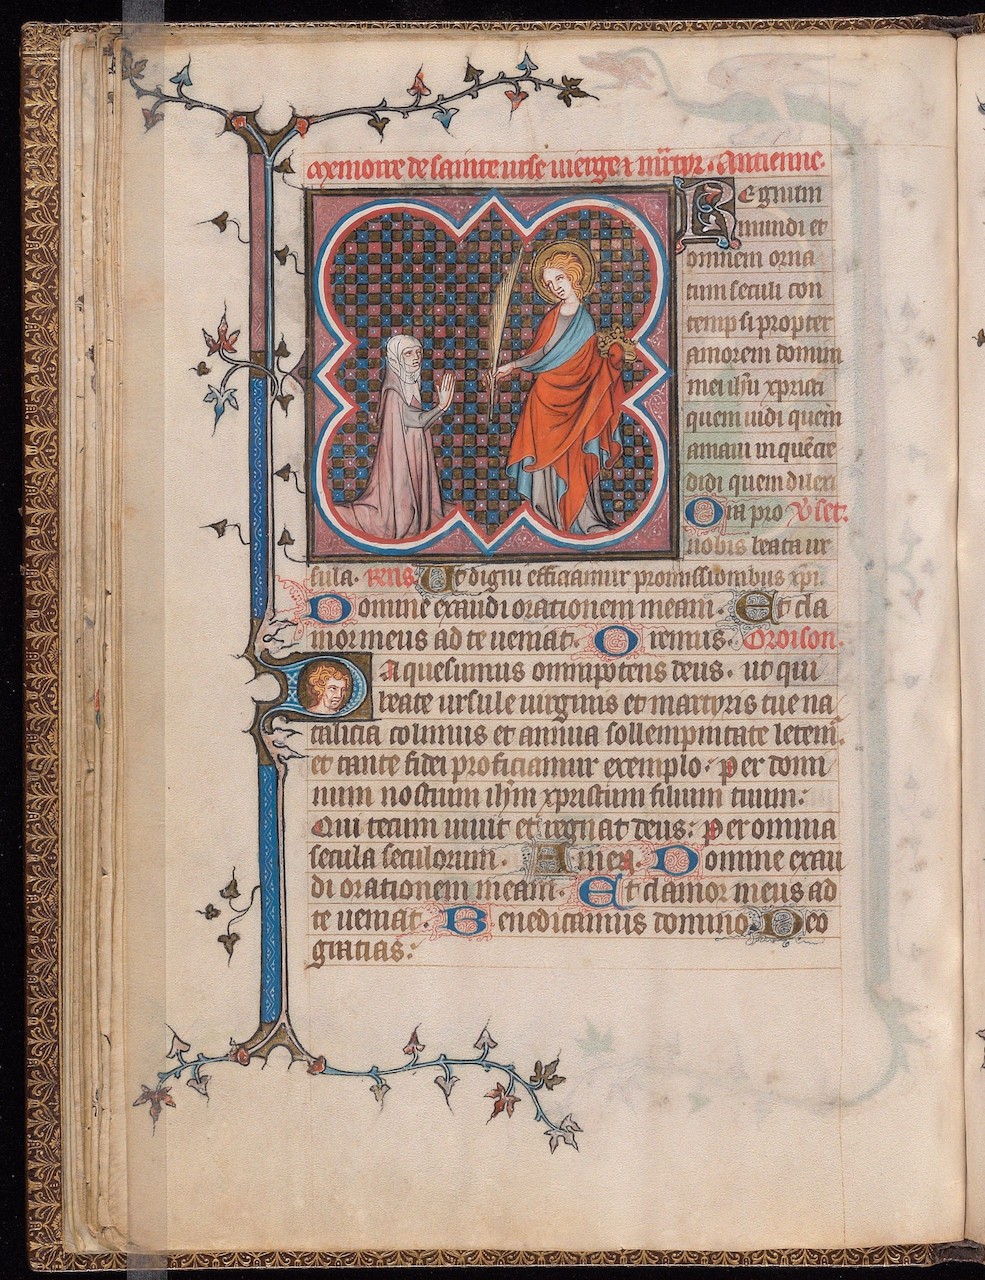 Memoire de sainte urse uierge ⁊ mr̄tyr. Antienne.
Regnum
mundi et
omnem orna
tum seculi con
tempsi propter
amorem domini
mei ih̄u xpristi
quem uidi quem
amaui in quē cre
didi quem dilexi
Ora pro V̓set.
nobis beata ur
sula. Rens. Ut digni efficiamur promissionibus xp̄i.
Domine exaudi orationem meam. Et cla
mor meus ad te ueniat. Oremus. Oroison.
Da quesumus omnipotens deus. ut qui
beate ursule uirginis et martyris tue na
talicia colimus et annua sollempnitate letem̄.
et tante fidei proficiamur exemplo. Per domi
num nostrum ih̄m xpristum filium tuum.
Qui tecum uiuit et regnat deus. Per omnia
secula seculorum. Amen. Domine exau
di orationem meam. Et clamor meus ad
te ueniat. Benedicamus domino. Deo
gratias.